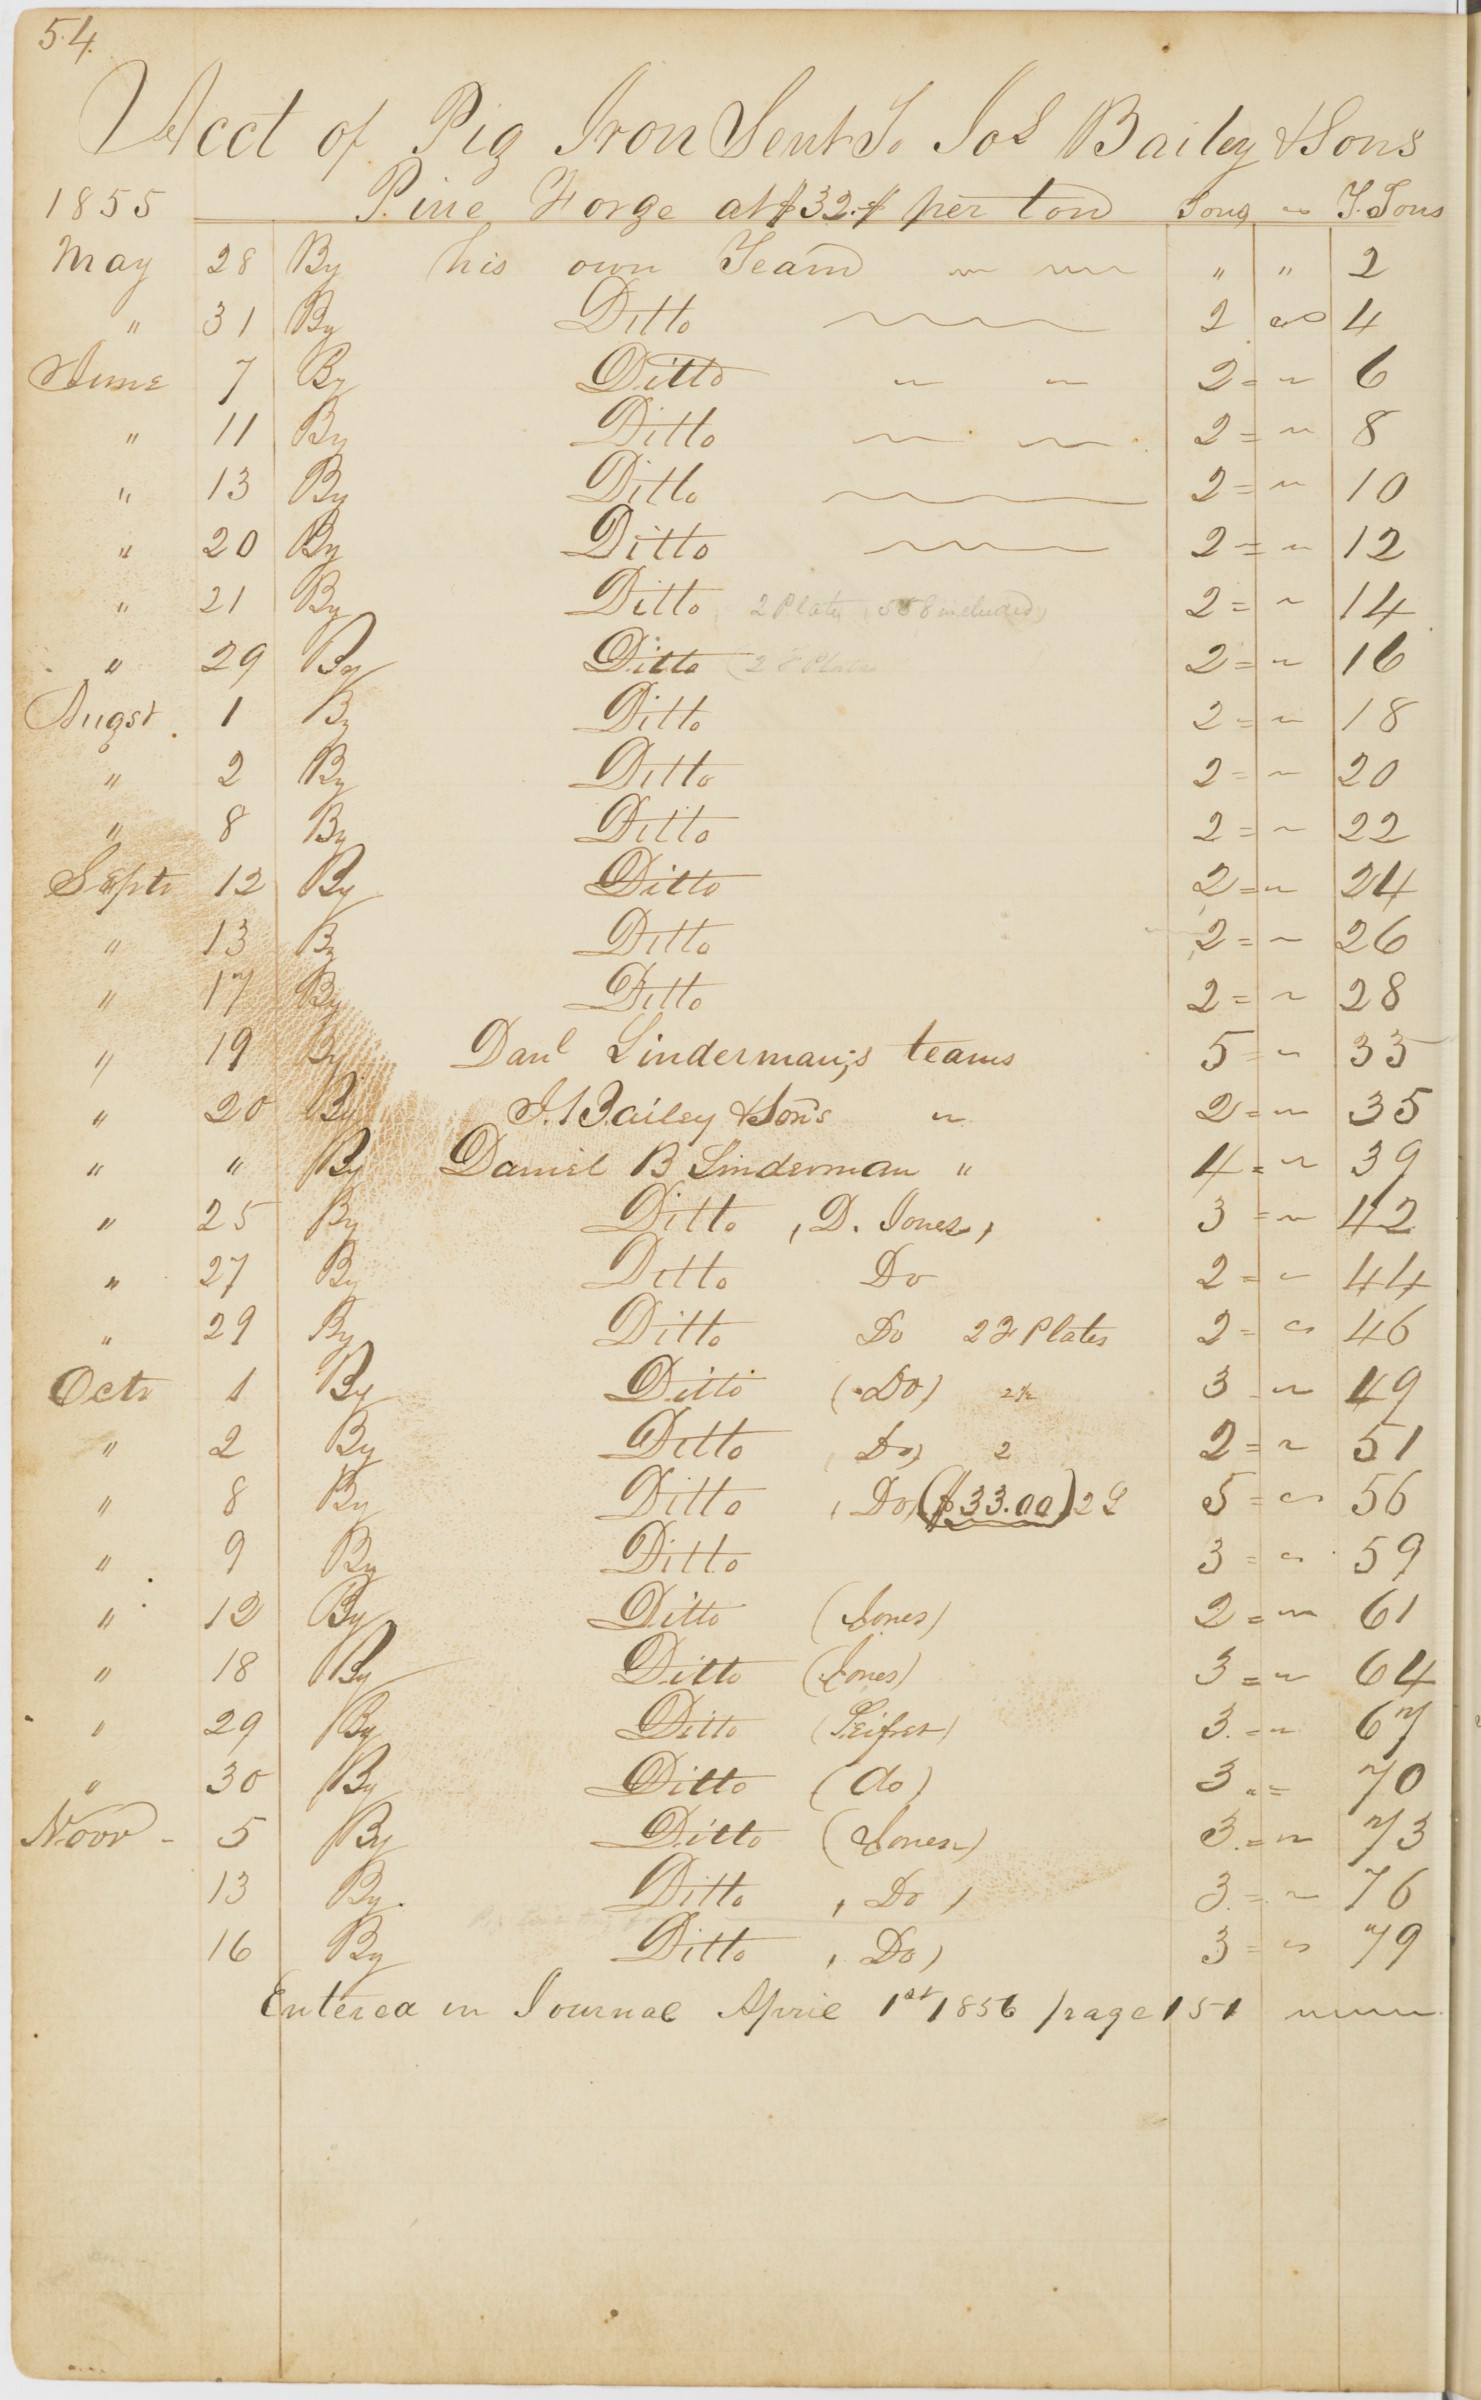 54.
Acct of Pig Iron Sent To Jos Bailey & Sons
1855 Pine Forge at $32.$ per ton Tons ~ T. Tons
May 28 By his own Team ~ ~ " " 2
" 31 By Ditto 2 ~ 4
June 7 By Ditto ~ ~ 2 = ~ 6
" 11 By Ditto ~ ~ 2 = ~ 8
" 13 By Ditto 2 = ~ 10
" 20 By Ditto 2 = ~ 12
" 21 By Ditto 2 Plates 558 included 2 = ~ 14
" 29 By Ditto (2 F Plates 2 = ~ 16
Augst 1 By Ditto 2 = ~ 18
" 2 By Ditto 2 = ~ 20
" 8 By Ditto 2 = ~ 22
Septr 12 By Ditto 2 = ~ 24
" 13 By Ditto 2 = ~ 26
" 17 By Ditto 2 = ~ 28
" 19 By Danl Linderman's teams 5 = ~ 33
" 20 By J. Bailey & Sons ~ 2 = ~ 35
" " By Daniel B Linderman " 4 = ~ 39
" 25 By Ditto , D. Jones, 3 = ~ 42
" 27 By Ditto Do 2 = ~ 44
" 29 By Ditto Do 2 F Plates 2 = ~ 46
Octr 1 By Ditto (Do) 2½ 3 ~ 49
" 2 By Ditto , Do, 2 2 = ~ 51
" 8 By Ditto , Do, ($33.00) 2 5 = ~ 56
" 9 By Ditto 3 = ~ 59
" 12 By Ditto (Jones) 2 = ~ 61
" 18 By Ditto (Jones) 3 = ~ 64
" 29 By Ditto 3 = ~ 67
" 30 By Ditto (do) 3 .= 70
Novr - 5 By Ditto (Jones) 3 = ~ 73
13 By Ditto , Do , 3 = ~ 76
16 By Ditto , Do, 3 = ~ 79
Entered in Journal April 1st 1856 page 151 ~